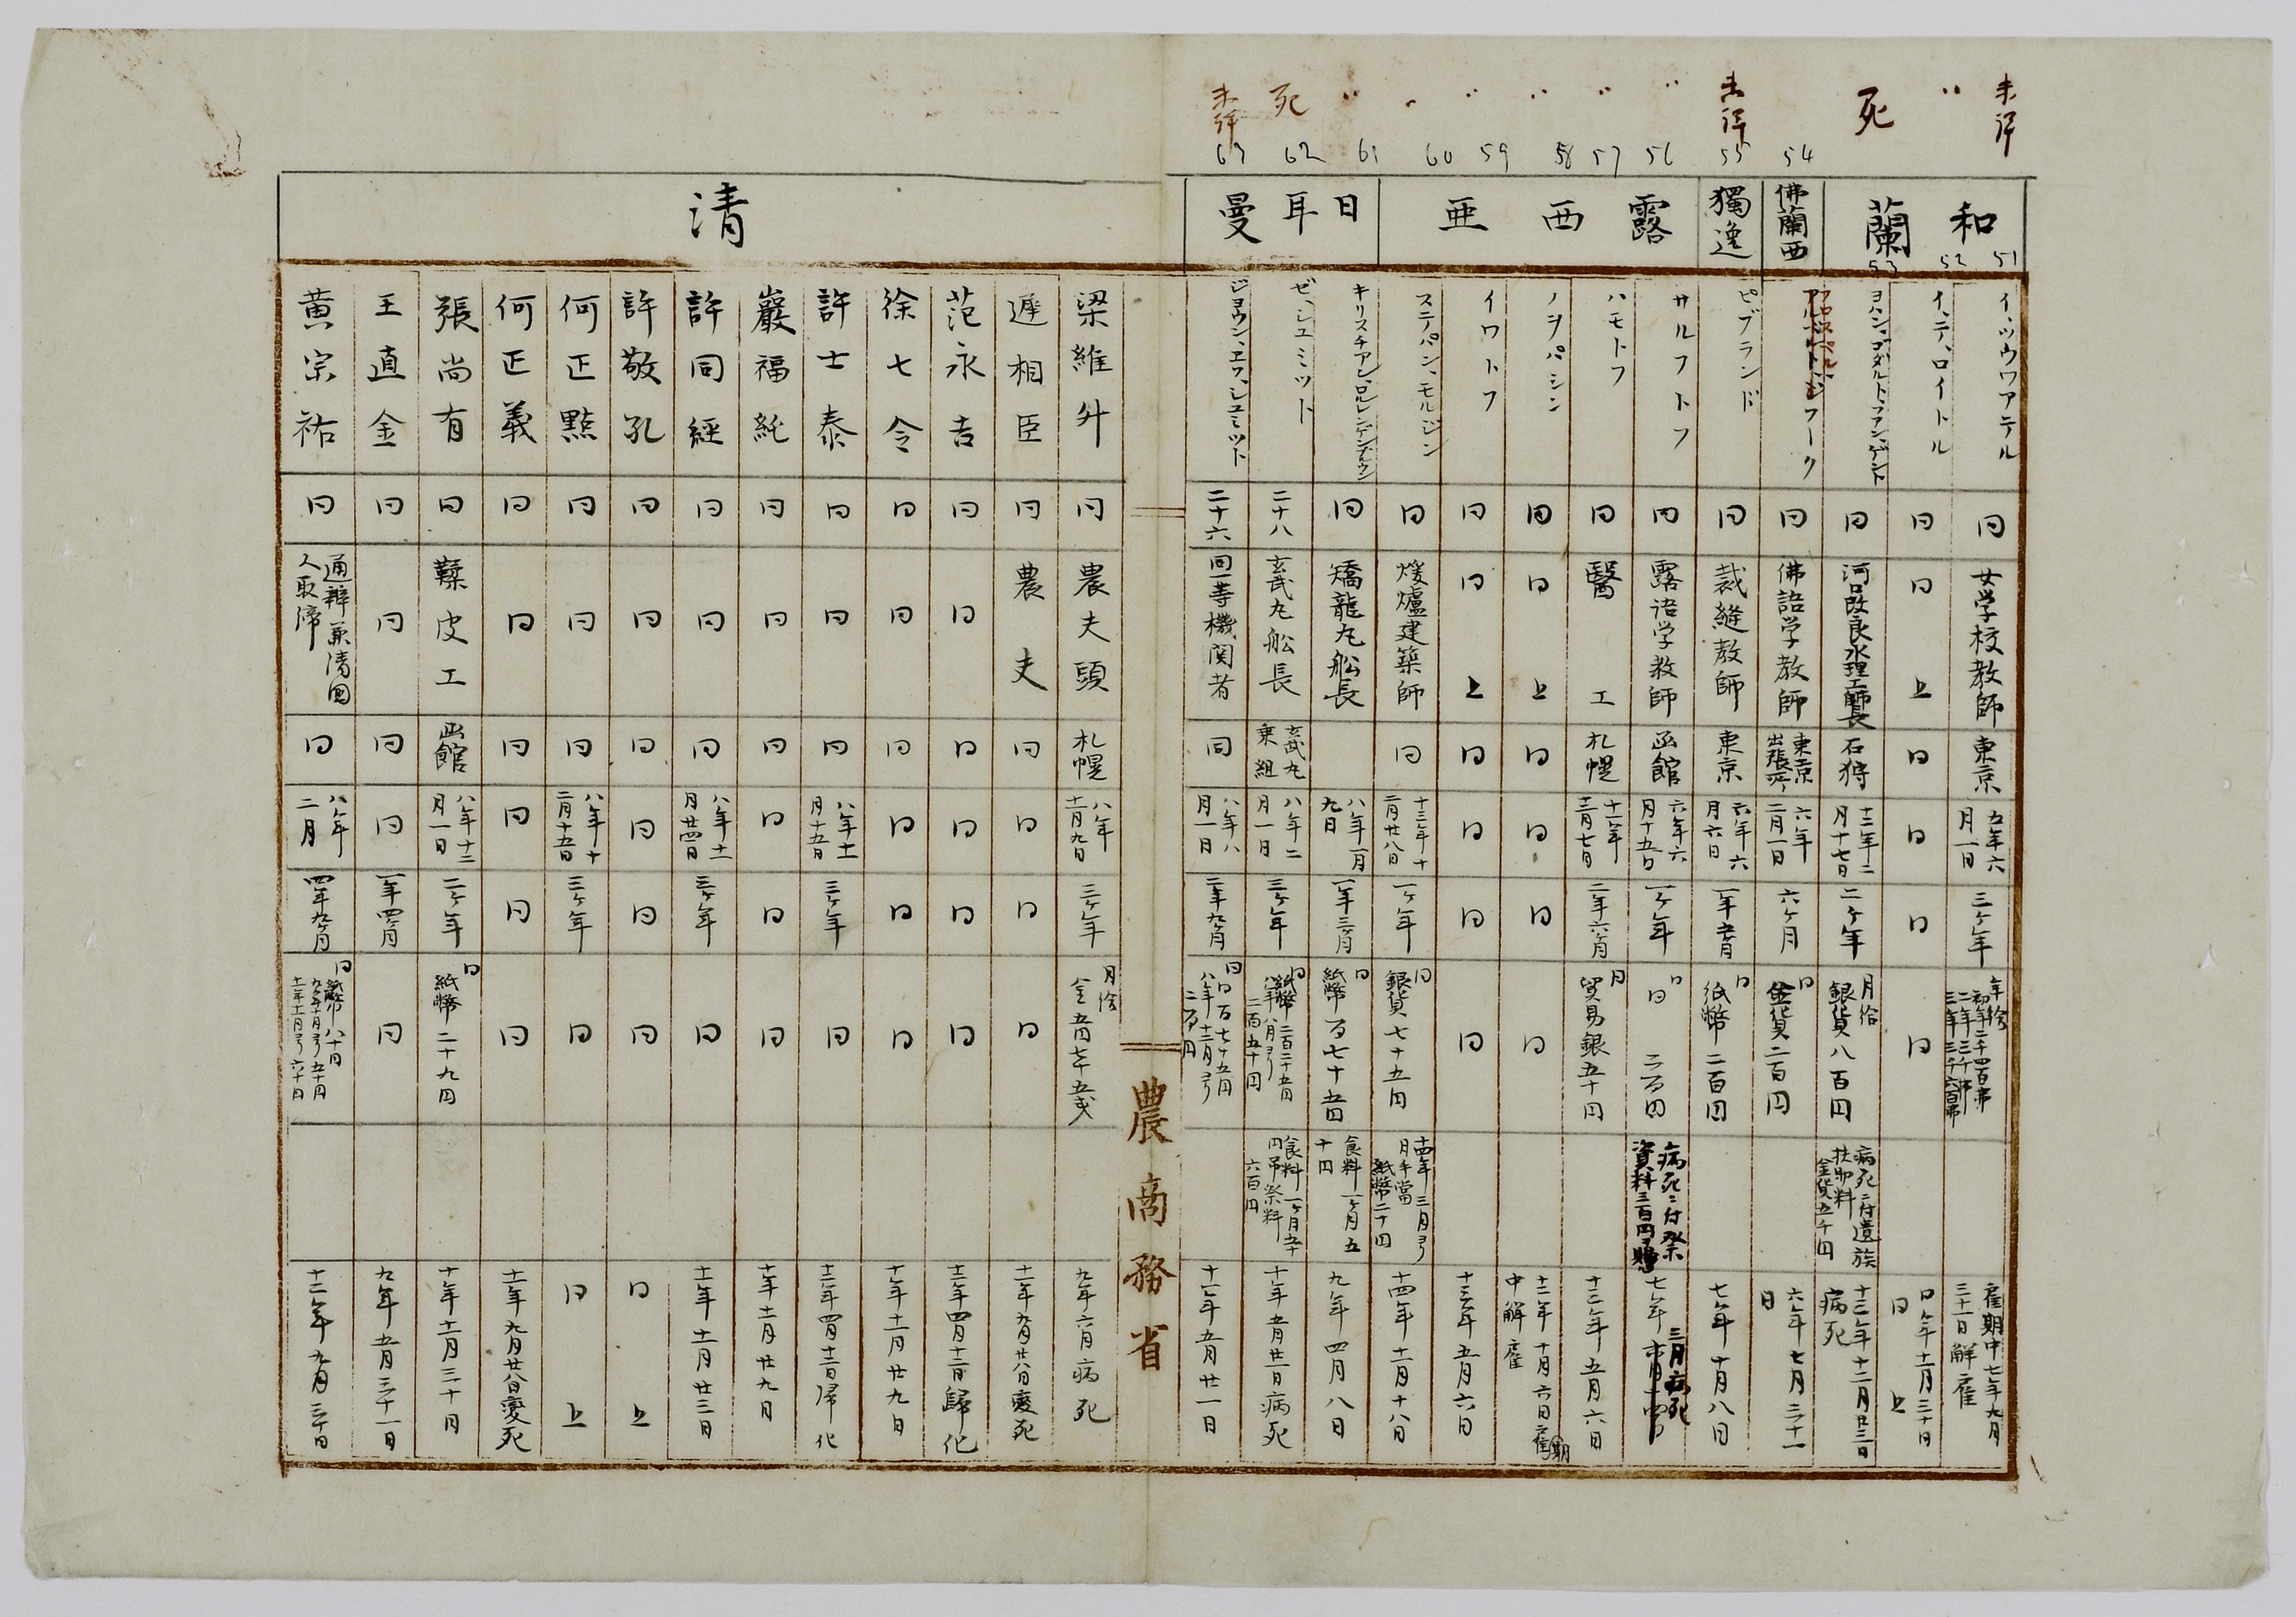 未詳 〃 死 未詳 〃 〃 〃 〃 〃 〃 死 未詳
54 55 56 57 58 59 60 61 62 63
和蘭
51 52 53
佛蘭西
獨逸
露西亜
日耳曼
清
イ、ツウワアテル 同 女学校教師 東京 五年六月一日 三ケ年 年給 初年二千四百弗 二年三千弗 三年三千六百弗 雇期中七年九月三十一日解雇
イ、テ、ロイトル 同 同上 同 同 同 同 同年十一月三十日 同上
ヨハン、ゴダルト、ファン、ゲント 同 河口改良水理工師長 石狩 十二年二月十七日 二ケ年 月給 銀貨八百円 病死ニ付遺族扶助料金貨五千円 十三年十二月廿三日病死
同 佛語学教師 東京出張所 六年二月一日 六ケ月 同 金貨二百円 六年七月三十一日
ピブランド 同 裁縫教師 東京 六年六月六日 一年五ケ月 同 紙幣二百円 七年十月八日
サルフトフ 同 露語学教師 函館 六年六月十五日 一ケ年 同 同 二百円 病死ニ付祭資料三百円賜 七年三月病死
ハモトフ 同 醫工 札幌 十一年十二月七日 二年六ケ月 同 貿易銀五十円 十三年五月六日
ノヲパシン 同 同上 同 同 同 同 十二年十月六日雇期中解雇
イワトフ 同 同上 同 同 同 同 十三年五月六日
ステパン、モルジン 同 煖爐建築師 同 十三年十二月廿八日 一ケ年 同 銀貨七十五円 十四年三月ヨリ月手當紙幣二十円 十四年十二月十八日
同 矯龍丸舩長 八年一月九日 一年三ケ月 同 紙幣百七十五円 食料一ケ月五十円 九年四月八日
ゼ、シュミット 二十八 玄武丸舩長 玄武丸乗組 八年二月一日 三ケ年 同 紙幣二百二十五円 八年八月ヨリ二百五十円 食料一ケ月五十円 吊祭料六百円 十年五月廿一日病死
ジョウン、エフ、シュミット 二十六 同一等機関者 同 八年八月一日 二年九ケ月 同 同百七十五円 八年十二月ヨリ二百円 十一年五月廿一日
農商務省
梁維升 同 農夫頭 札幌 八年十一月九日 三ケ年 月給 金五円七十五戋 九年六月病死
遲相臣 同 農夫 同 同 同 同 十一年九月廿八日変死
范永吉 同 同 同 同 同 同 十二年四月十二日歸化
徐七令 同 同 同 同 同 同 十年十一月廿九日
許士泰 同 同 同 八年十一月十五日 三ケ年 同 十二年四月十二日歸化
巖福純 同 同 同 同 同 同 十年十一月廿九日
許同經 同 同 同 八年十一月廿四日 三ケ年 同 十一年十一月廿三日
許敬孔 同 同 同 同 同 同 同上
何正點 同 同 同 八年十二月十五日 三ケ年 同 同上
何正義 同 同 同 同 同 同 十一年九月廿八日変死
張尚有 同 鞣皮工 函館 八年十二月一日 二ケ年 同 紙幣二十九円 十年十一月三十日
王直金 同 同 同 同 一年四ケ月 同 九年五月三十一日
黄宗祐 同 通辨兼清国人取締 同 八年二月 四年九ケ月 同 紙幣八十円 九年十月ヨリ五十円 十一年十一月ヨリ六十円 十二年九月三十日